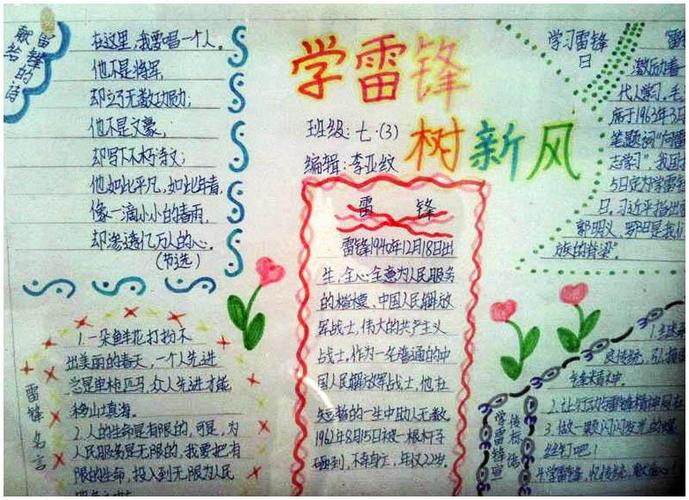 献给雷锋的诗
在这里,我要唱一个人。
他不是将军,
却立了无数功勋;
他不是文豪,
却写下不朽诗文;
他如此平凡,如此年青,
像一滴小小的春雨,
却渗透亿万人的心。
(节选)
学雷锋
树新风
班级:七·(3)
编辑:李亚纹
雷 锋
雷锋1940年12月18日出
生,全心全意为人民服务
的楷模,中国人民解放
军战士,伟大的共产主义
战士,作为一名普通的中
国人民解放军战士,他在
短暂的一生中助人无数,
1962年8月15日被一根杆子
砸到,不幸身亡,年仅22岁。
学习雷锋
日
激励着一
代人学习,毛
席于1963年3月
笔题词“向雷
志学习”,我国
5日定为学雷
日。习近平指出
郭明义,
族的脊梁”。
雷锋名言
1.一朵鲜花打扮不
出美丽的春天,一个人先进
总是单枪匹马,众人先进才能
移山填海。
2.人的生命是有限的,可是,为
人民服务是无限的,我要把有
限的生命,投入到无限为人民
学雷锋
传雷锋
宣传
2.让
3.做一颗闪闪发光的螺
丝钉吧!
4.学雷锋,